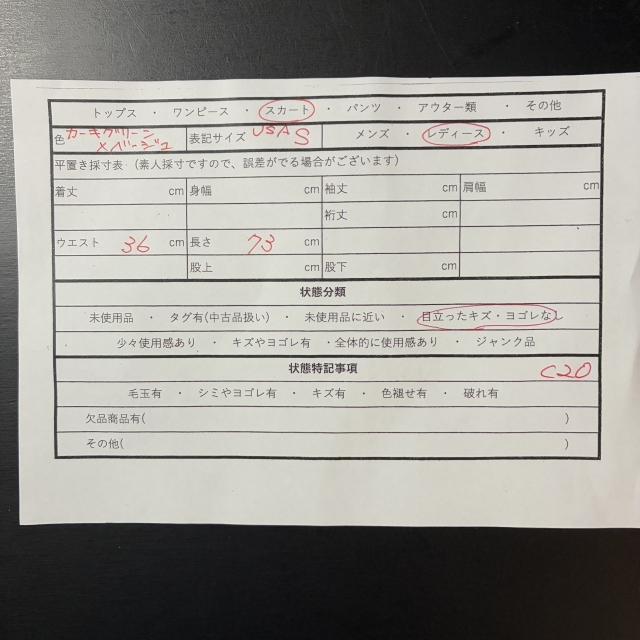 トップス ・ ワンピース ・ スカート ・ パンツ ・ アウター類 ・ その他
色 カーキグリーン×ベージュ 表記サイズ USA S メンズ ・ レディース ・ キッズ
平置き採寸表 (素人採寸ですので、誤差がでる場合がございます)
着丈 cm 身幅 cm 袖丈 cm 肩幅 cm
裄丈 cm
ウエスト 36 cm 長さ 73 cm
股上 cm 股下 cm
状態分類
未使用品 ・ タグ有(中古品扱い) ・ 未使用品に近い ・ 目立ったキズ・ヨゴレなし
少々使用感あり ・ キズやヨゴレ有 ・全体的に使用感あり ・ ジャンク品
状態特記事項 C20
毛玉有 ・ シミやヨゴレ有 ・ キズ有 ・ 色褪せ有 ・ 破れ有
欠品商品有( )
その他( )